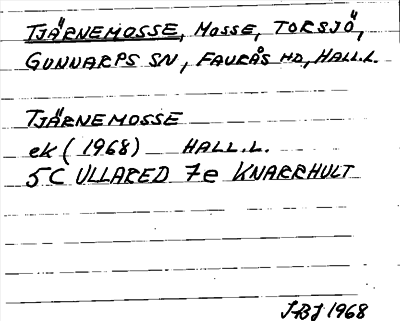 TJÄRNEMOSSE, MOSSE, TORSJÖ,
GUNNARPS SN, FAURÅS HD, HALL.L.
TJÄRNEMOSSE
ek (1968) HALL.L.
5C ULLARED 7e KNARRHULT
SBJ 1968